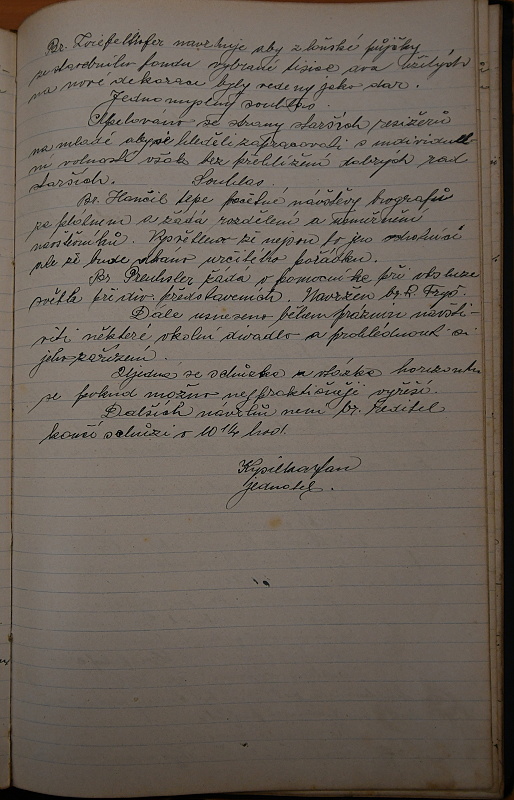 Br. Zwiefelhofer navrhuje aby z loňské půjčky
ze stavebního fondu vybrané tisíce dva užitých
na nové dekorace byly vedeny jako dar.
Jednomyslný souhlas.
Apelováno se strany starších resižérů
na mladé aby se hleděli zapracovati s individuel-
ní volností však bez přehlížení dobrých rad
starších. Souhlas.
Br. Hančil tepe početné návštěvy biografů
za plátnem a žádá rozdělení a
návštěvníků. Vysvětleno že nejsou to jen sokolníci
ale že bude dbáno určitého pořádku.
Br. Preuhsler žádá o pomocníka při obsluze
světla při div. představeních. Navržen br. L. Fryš.
Dále usneseno během prázdnin navští-
viti některé okolní divadlo a prohlédnout si
jeho zařízení.
Ujedná se schůzka a otázka horizontu
se pokud možno nejpraktičněji vyřeší.
Dalších návrhů není br. ředitel
končí schůzi o 10 1/4 hod.
jednatel.